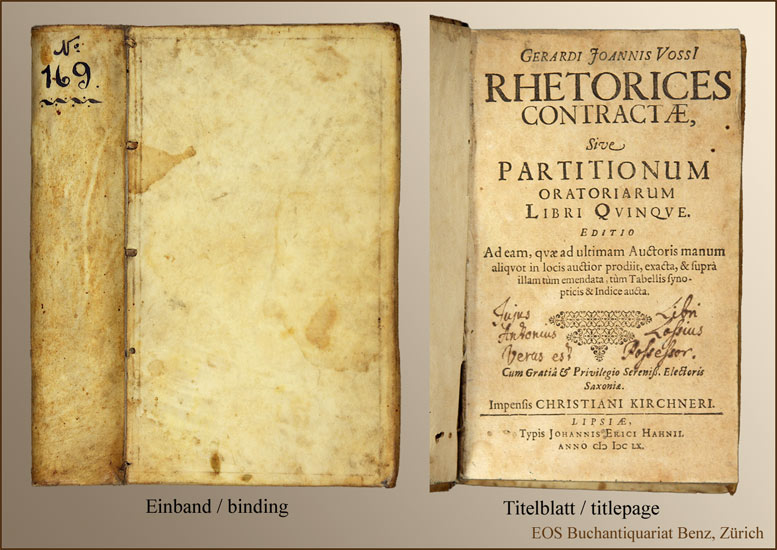 No.
169.
GERARDI JOANNIS VOSSI
RHETORICES
CONTRACTÆ,
Sive
PARTITIONUM
ORATORIARUM
LIBRI QVINQVE.
EDITIO
Ad eam, quæ ad ultimam Auctoris manum
aliqvot in locis auctior prodiit, exacta, & suprà
illam tùm emendata, tùm Tabellis syno-
pticis & Indice aucta.
Jujus Libri
Antonius Lossius
Verus est Possessor.
Cum Gratiâ & Privilegio Sereniß. Electoris
Saxoniæ.
Impensis CHRISTIANI KIRCHNERI.
LIPSIÆ,
Typis JOHANNIS ERICI HAHNII.
ANNO CIↃ IↃC LX.
Einband / binding
Titelblatt / titlepage
EOS Buchantiquariat Benz, Zürich